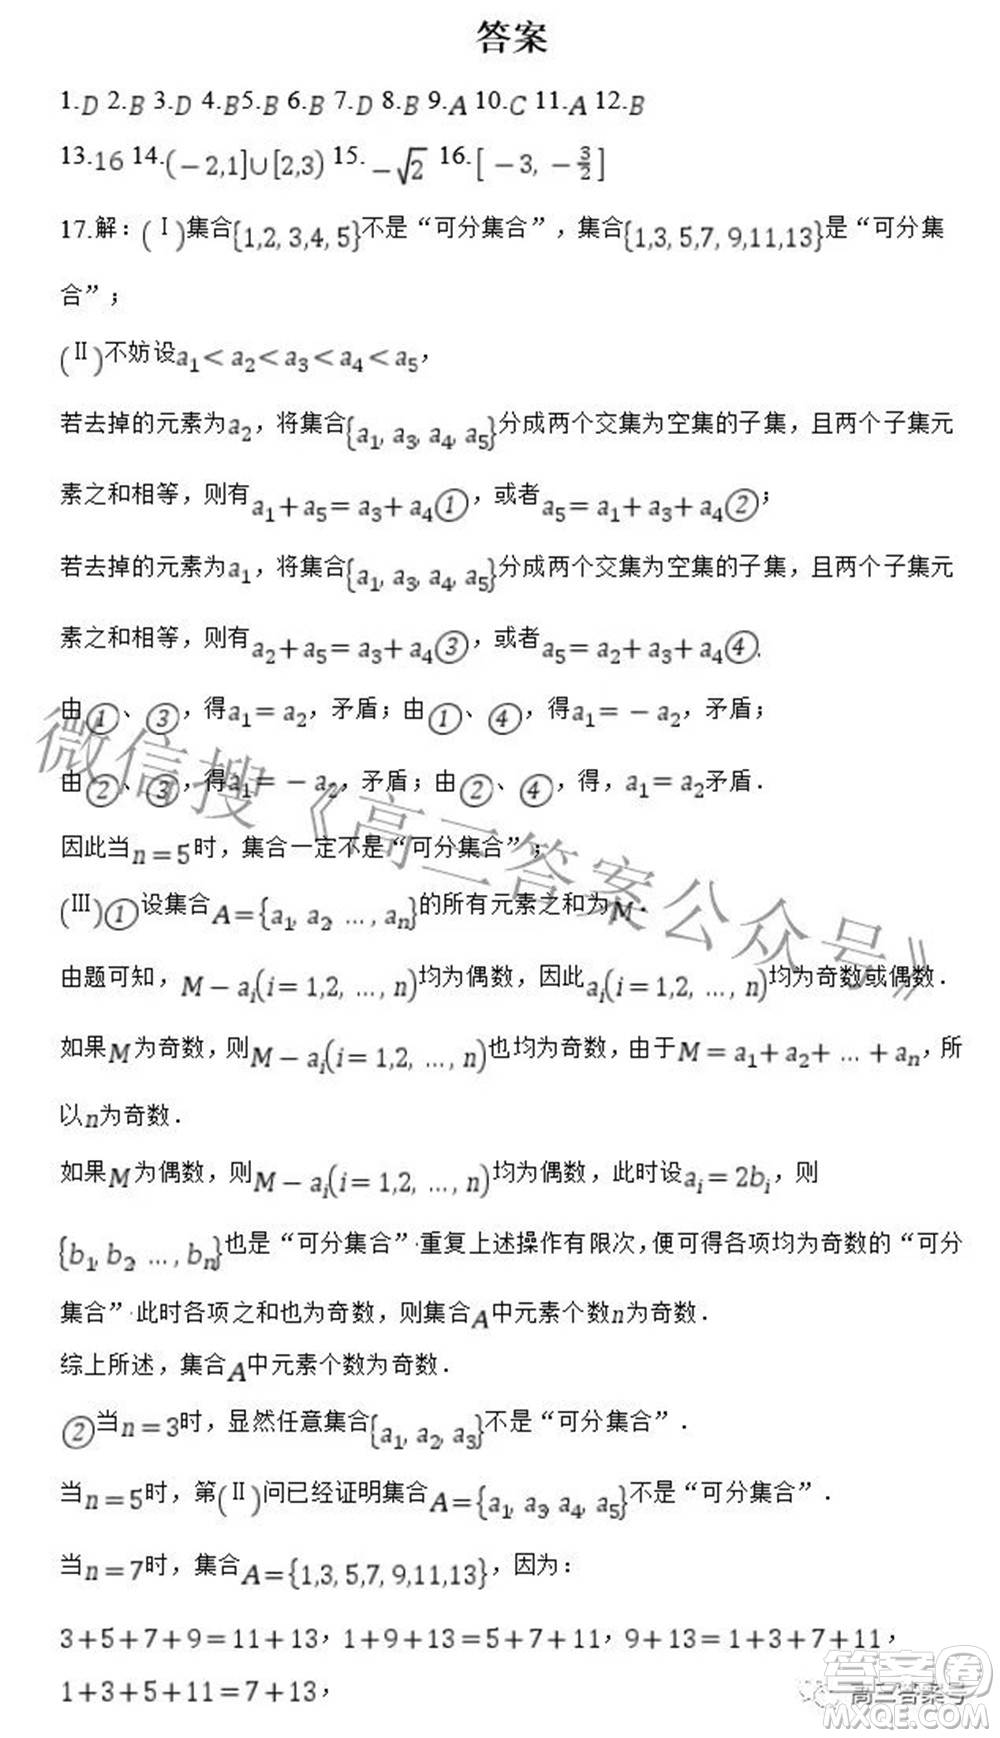 答案
1.D 2.B 3.D 4.B5.B 6.B 7.D 8.B 9.A 10.C 11.A 12.B
13.16 14.(－2,1]∪[2,3) 15.－√2 16.[－3,－3/2]
17.解：(Ⅰ)集合{1,2,3,4,5}不是“可分集合”，集合{1,3,5,7,9,11,13}是“可分集
合”；
(Ⅱ)不妨设a₁＜a₂＜a₃＜a₄＜a₅，
若去掉的元素为a₂，将集合{a₁,a₃,a₄,a₅}分成两个交集为空集的子集，且两个子集元
素之和相等，则有a₁＋a₅＝a₃＋a₄①，或者a₅＝a₁＋a₃＋a₄②；
若去掉的元素为a₁，将集合{a₁,a₃,a₄,a₅}分成两个交集为空集的子集，且两个子集元
素之和相等，则有a₂＋a₅＝a₃＋a₄③，或者a₅＝a₂＋a₃＋a₄④.
由①、③，得a₁＝a₂，矛盾；由①、④，得a₁＝－a₂，矛盾；
由②、③，得a₁＝－a₂，矛盾；由②、④，得，a₁＝a₂矛盾．
因此当n＝5时，集合一定不是“可分集合”；
(Ⅲ)①设集合A＝{a₁,a₂,…,aₙ}的所有元素之和为M．
由题可知，M－aᵢ(i＝1,2,…,n)均为偶数，因此aᵢ(i＝1,2,…,n)均为奇数或偶数．
如果M为奇数，则M－aᵢ(i＝1,2,…,n)也均为奇数，由于M＝a₁＋a₂＋…＋aₙ，所
以n为奇数．
如果M为偶数，则M－aᵢ(i＝1,2,…,n)均为偶数，此时设aᵢ＝2bᵢ，则
{b₁,b₂,…,bₙ}也是“可分集合”·重复上述操作有限次，便可得各项均为奇数的“可分
集合”·此时各项之和也为奇数，则集合A中元素个数n为奇数．
综上所述，集合A中元素个数为奇数．
②当n＝3时，显然任意集合{a₁,a₂,a₃}不是“可分集合”．
当n＝5时，第(Ⅱ)问已经证明集合A＝{a₁,a₃,a₄,a₅}不是“可分集合”．
当n＝7时，集合A＝{1,3,5,7,9,11,13}，因为：
3＋5＋7＋9＝11＋13，1＋9＋13＝5＋7＋11，9＋13＝1＋3＋7＋11，
1＋3＋5＋11＝7＋13，
微信搜《高三答案公众号》
高三答案号
答案卷
MXQE.COM